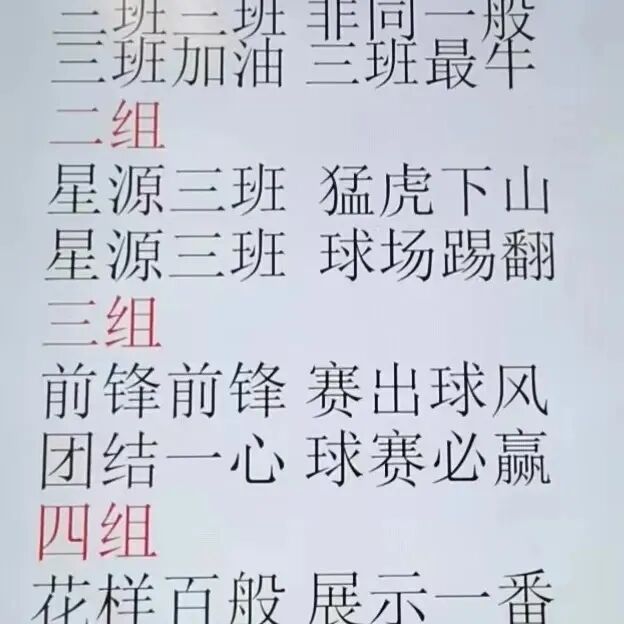 三班三班 非同一般
三班加油 三班最牛
二组
星源三班 猛虎下山
星源三班 球场踢翻
三组
前锋前锋 赛出球风
团结一心 球赛必赢
四组
花样百般 展示一番